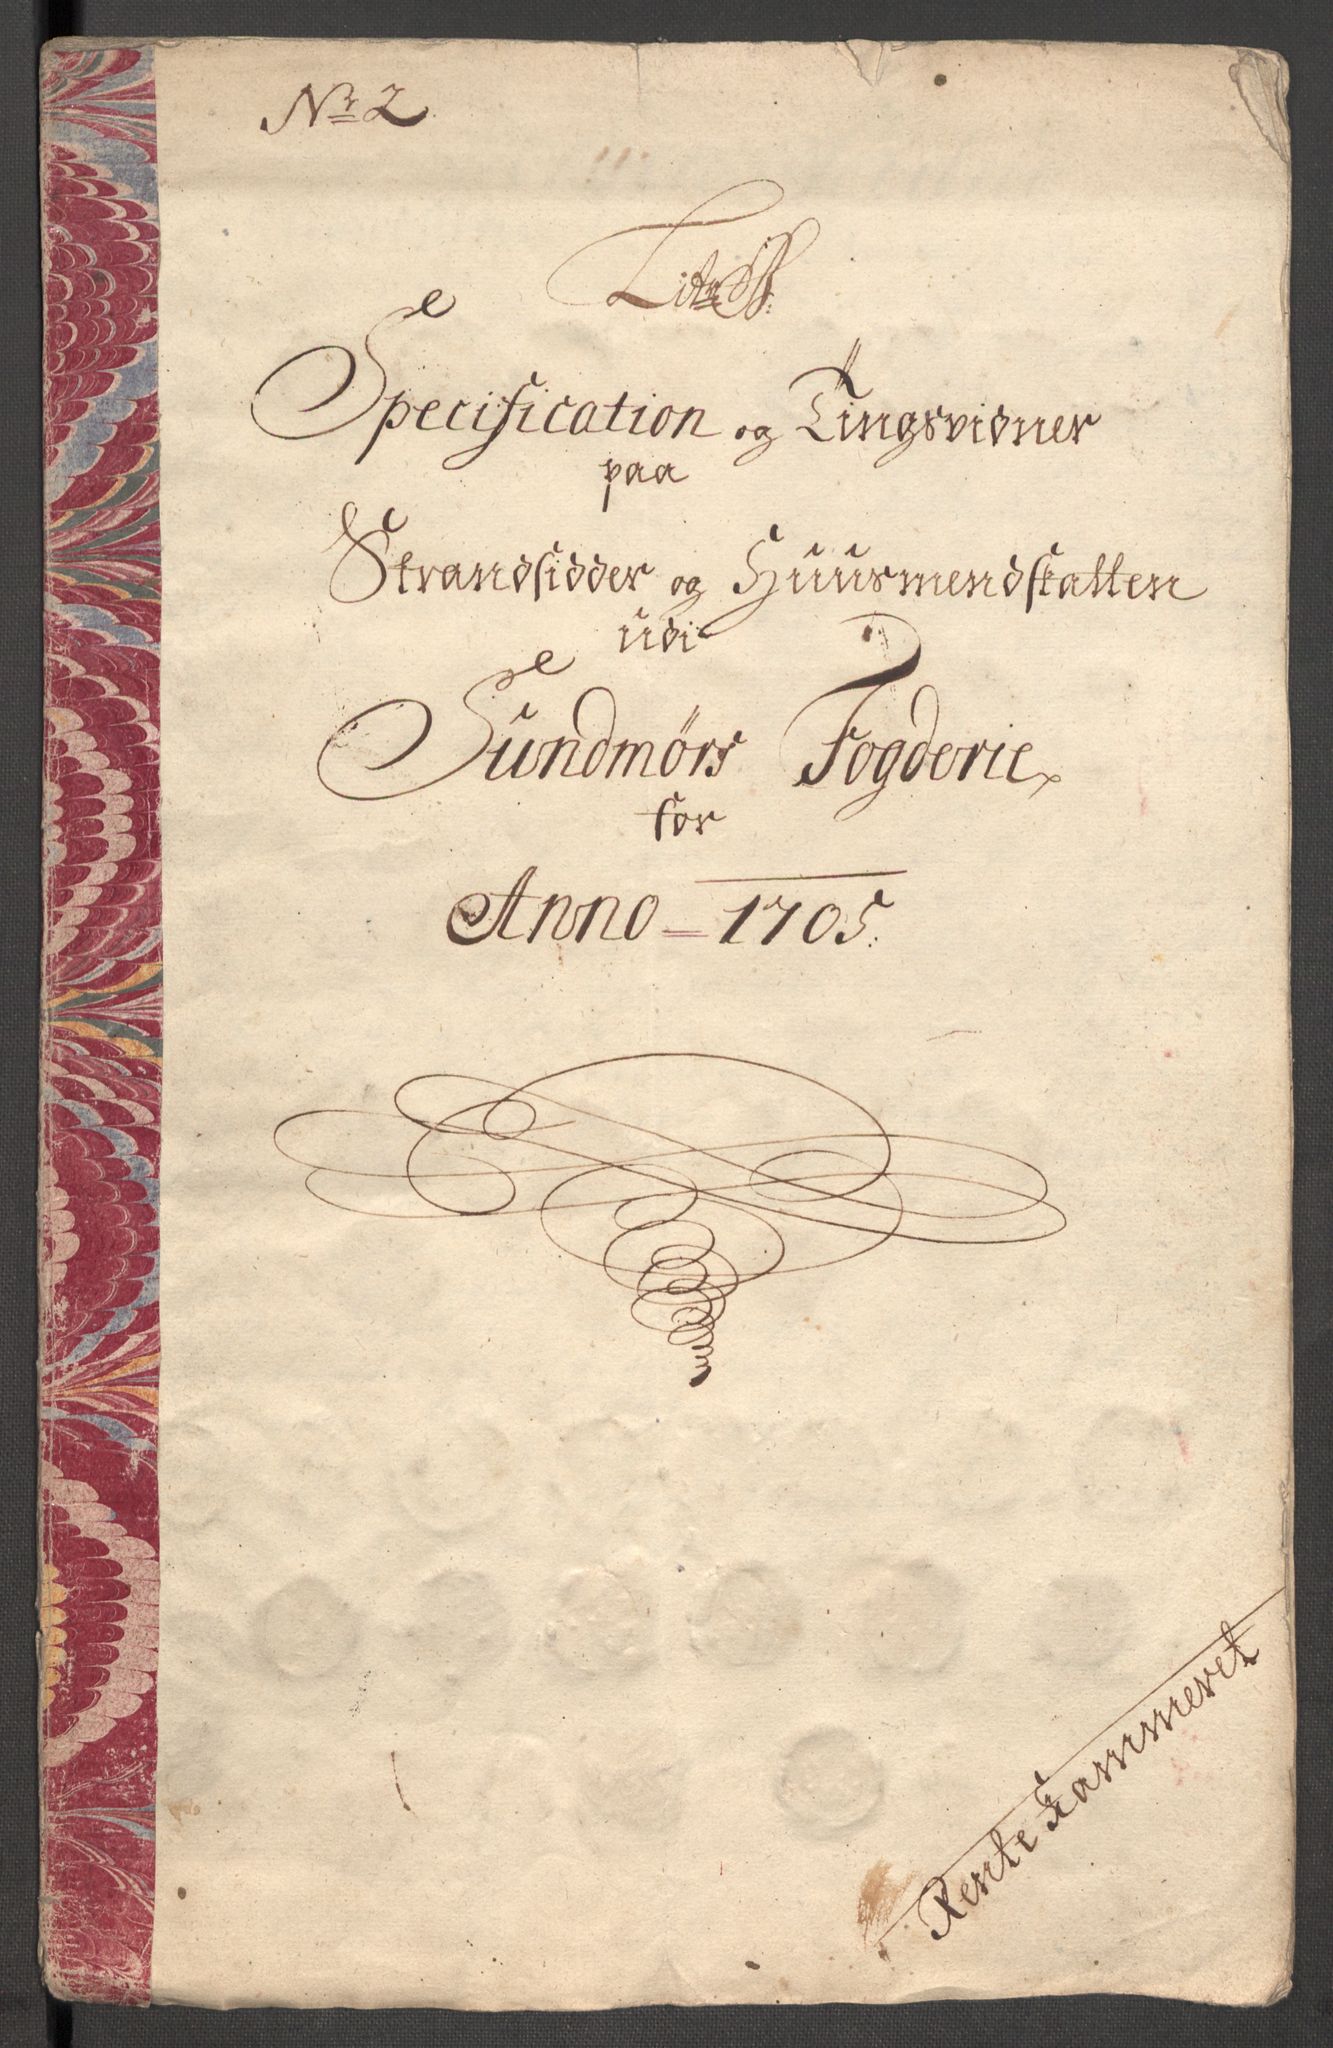 Nr 2.
Litra B:
Specification og Tingsvidner
paa
Strandsidder og Huusmendskatten
udi
Sundmørs Fogderie
for
Anno 1705.
Rente Cammeret